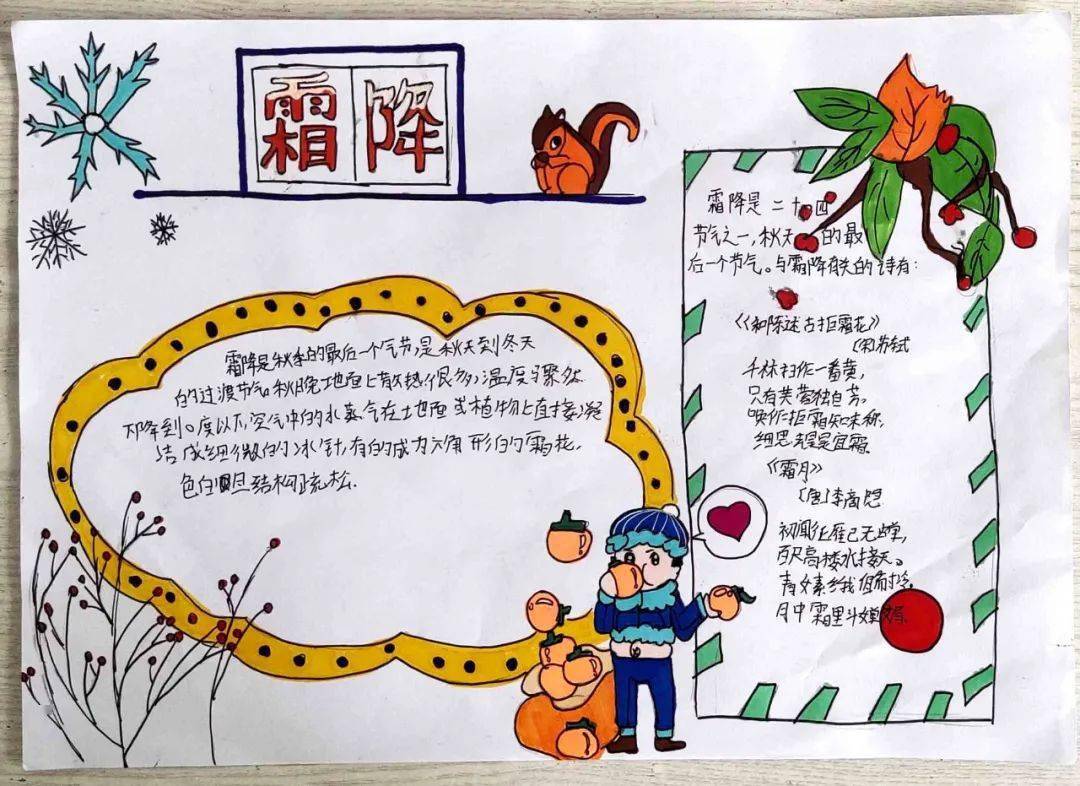 霜降
霜降是秋季的最后一个气节,是秋天到冬天
的过渡节气.秋晚地面上散热很多,温度骤然
下降到0度以下,空气中的水蒸气在地面或植物上直接凝
结成细微的冰针,有的成为六角形的霜花,
色白且结构疏松.
霜降是二十四
节气之一,秋天的最
后一个节气。与霜降有关的诗有:
《和陈述古拒霜花》
(宋)苏轼
千林扫作一番黄,
只有芙蓉独自芳,
唤作拒霜知未称,
细思却是宜霜.
《霜月》
[唐]李商隐
初闻征雁已无蝉,
百尺高楼水接天。
青女素娥俱耐冷,
月中霜里斗婵娟.